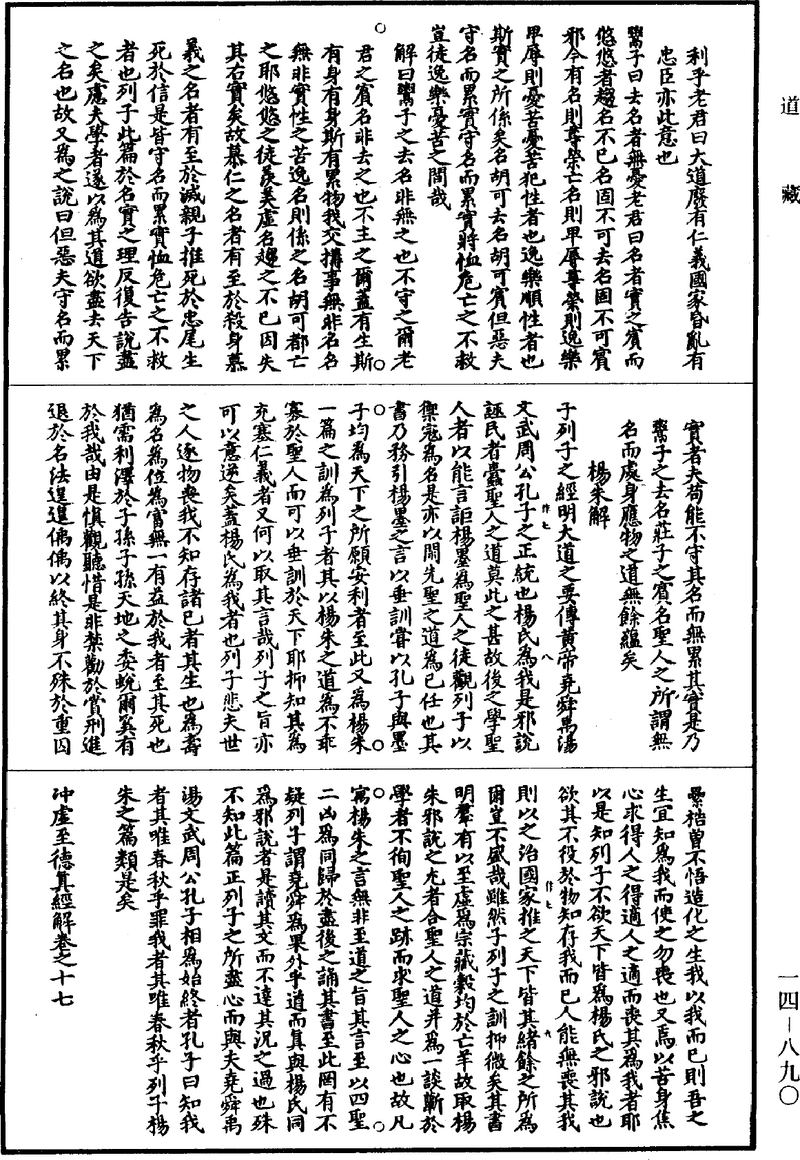 道藏
利乎老君曰大道廢有仁義國家昏亂有
忠臣亦此意也
鬻子曰去名者無憂老君曰名者實之賓而
悠悠者趨名不已名固不可去名固不可賓
邪今有名則尊榮亡名則卑辱尊榮則逸樂
卑辱則憂苦憂苦犯性者也逸樂順性者也
斯實之所係矣名胡可去名胡可賓但惡夫
守名而累實守名而累實將恤危亡之不救
豈徒逸樂憂苦之間哉
解曰鬻子之去名非無之也不守之爾老
君之賓名非去之也不主之爾蓋有生斯
有身有身斯有累物我交搆事無非名名
無非實性之苦逸名則係之名胡可都亡
之耶悠悠之徒羨美虛名趨之不已因失
其右實矣故慕仁之名者有至於殺身慕
義之名者有至於滅親子推死於忠尾生
死於信是皆守名而累實恤危亡之不救
者也列子此篇於名實之理反復告說盡
之矣慮夫學者遂以為其道欲盡去天下
之名也故又為之說曰但惡夫守名而累
實者夫苟能不守其名而無累其實是乃
鬻子之去名莊子之賓名聖人之所謂無
名而處身應物之道無餘蘊矣
楊朱解
子列子之經明大道之要傳黃帝堯舜禹湯
文武周公孔子之正統也楊氏為我是邪說
誣民者蠹聖人之道莫此之甚故後之學聖
人者以能言詎楊墨為聖人之徒觀列子以
禦寇為名是亦以閑先聖之道為己任也其
書乃務引楊墨之言以垂訓嘗以孔子與墨
子均為天下之所願安利者至此又為楊朱
一篇之訓為列子者其以楊朱之道為不乖
寡於聖人而可以垂訓於天下耶抑知其為
充塞仁義者又何以取其言哉列子之旨亦
可以意逆矣蓋楊氏為我者也列子悲夫世
之人逐物喪我不知存諸己者其生也為壽
為名為位為富無一有益於我者至其死也
猶需利澤於子孫子孫天地之委蛻爾奚有
於我哉由是慎觀聽惜是非禁勸於賞刑進
退於名法遑遑偊偊以終其身不殊於重囚
纍梏曾不悟造化之生我以我而已則吾之
生宜知為我而使之勿喪也又焉以苦身焦
心求得人之得適人之適而喪其為我者耶
以是知列子不欲天下皆為楊氏之邪說也
欲其不役於物知存我而已人能無喪其我
則以之治國家推之天下皆其緒餘之所為
爾豈不盛哉雖然子列子之訓抑微矣其書
明羣有以至虛為宗臧穀均於亡羊故取楊
朱邪說之尤者合聖人之道并為一談蘄於
學者不徇聖人之跡而求聖人之心也故凡
寓楊朱之言無非至道之旨其言至以四聖
二凶為同歸於盡後之誦其書至此罔有不
疑列子謂堯舜為果外乎道而真與楊氏同
為邪說者是讀其文而不達其況之過也殊
不知此篇正列子之所盡心而與夫堯舜禹
湯文武周公孔子相為始終者孔子曰知我
者其唯春秋乎罪我者其唯春秋乎列子楊
朱之篇類是矣
沖虛至德真經解卷之十七
一四－八九〇